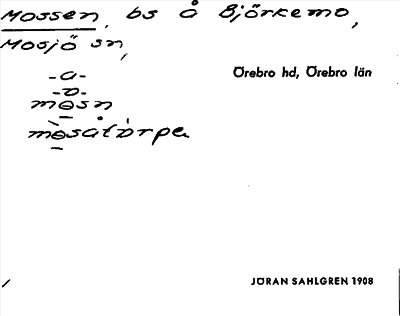 Mossen, bs å Björkemo,
Mosjö sn,
-a-
-o-
Örebro hd, Örebro län
mosn
mosatorpa
JÖRAN SAHLGREN 1908